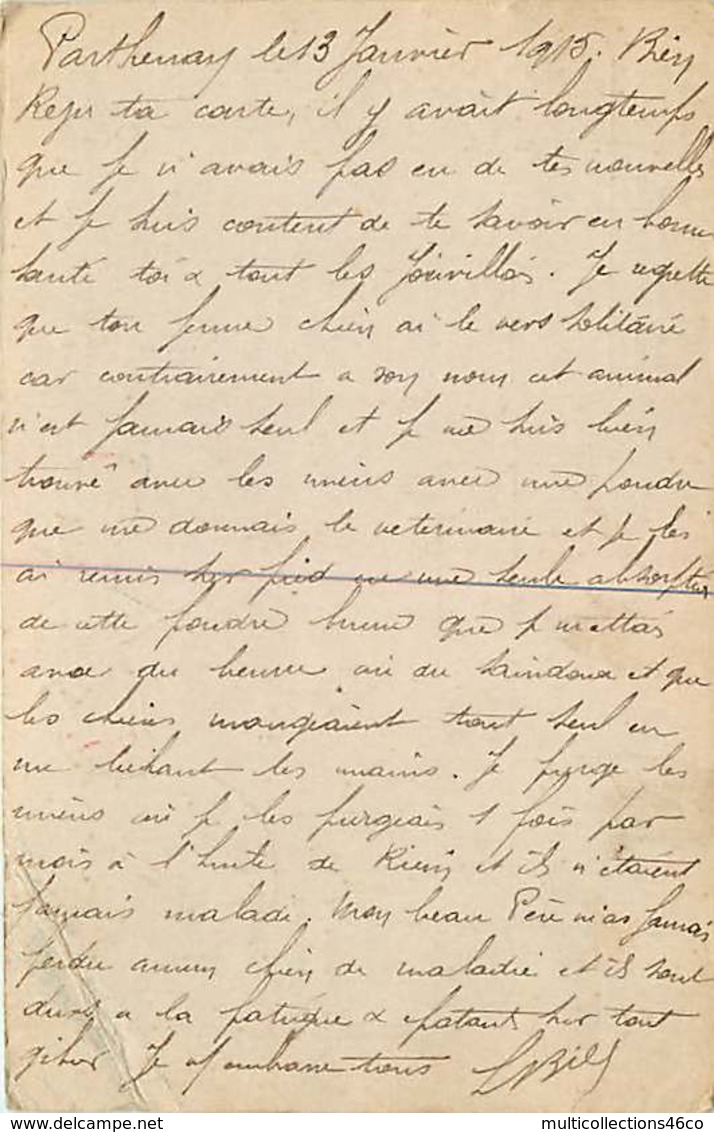 Parthenay le 13 Janvier 1915. Bien
Reçu ta carte, il y avait longtemps
que je n'avais pas eu de tes nouvelles
et je suis content de te savoir en bonne
santé toi & tout les Joinvillois. Je regrette
que ton jeune chien ai le vers solitaire
car contrairement a son nom cet animal
n'est jamais seul et je me suis bien
trouvé avec les miens avec une poudre
que me donnais le veterinaire et je les
ai remis sur pied en une seule absorption
de cette poudre brune que je mettais
avec du beurre ou du saindoux et que
les chiens mangeaient tout seul en
me lechant les mains. Je purge les
miens ou je les purgeais 1 fois par
mois à l'huile de Ricin et ils n'étaient
jamais malade. Mon beau Père n'as jamais
perdu aucun chien de maladie et ils sont
durs a la fatigue & epatant sur tout
gibier Je t'embrasse tous
multicollections46co